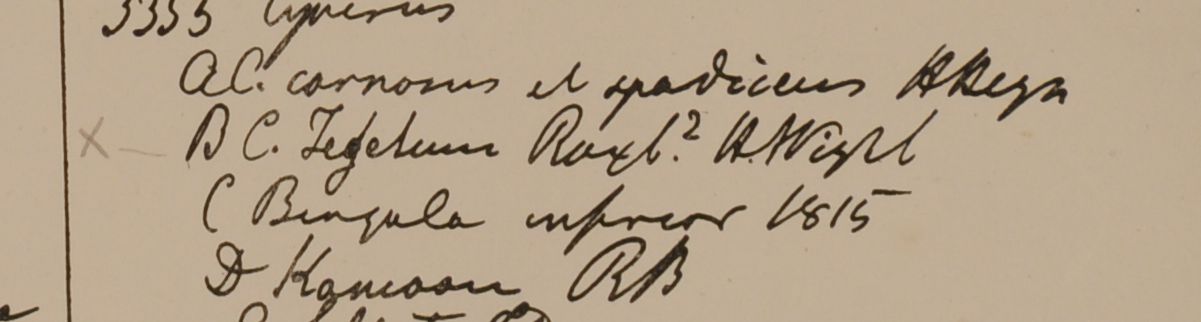 3353 Cyperus
A C. carnosus et spadiceus H Heyn
X B C. Tegetum Roxb.? H. Wight
C Bengala inferior 1815
D Kamaon RB